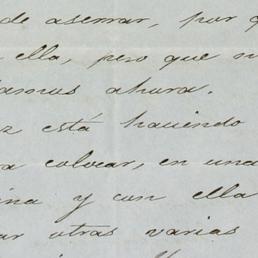 de aserrar, por q
ella, pero que n
lamos ahora.
z está haciendo
a colocar, en una
ina y con ella
ar otras varias